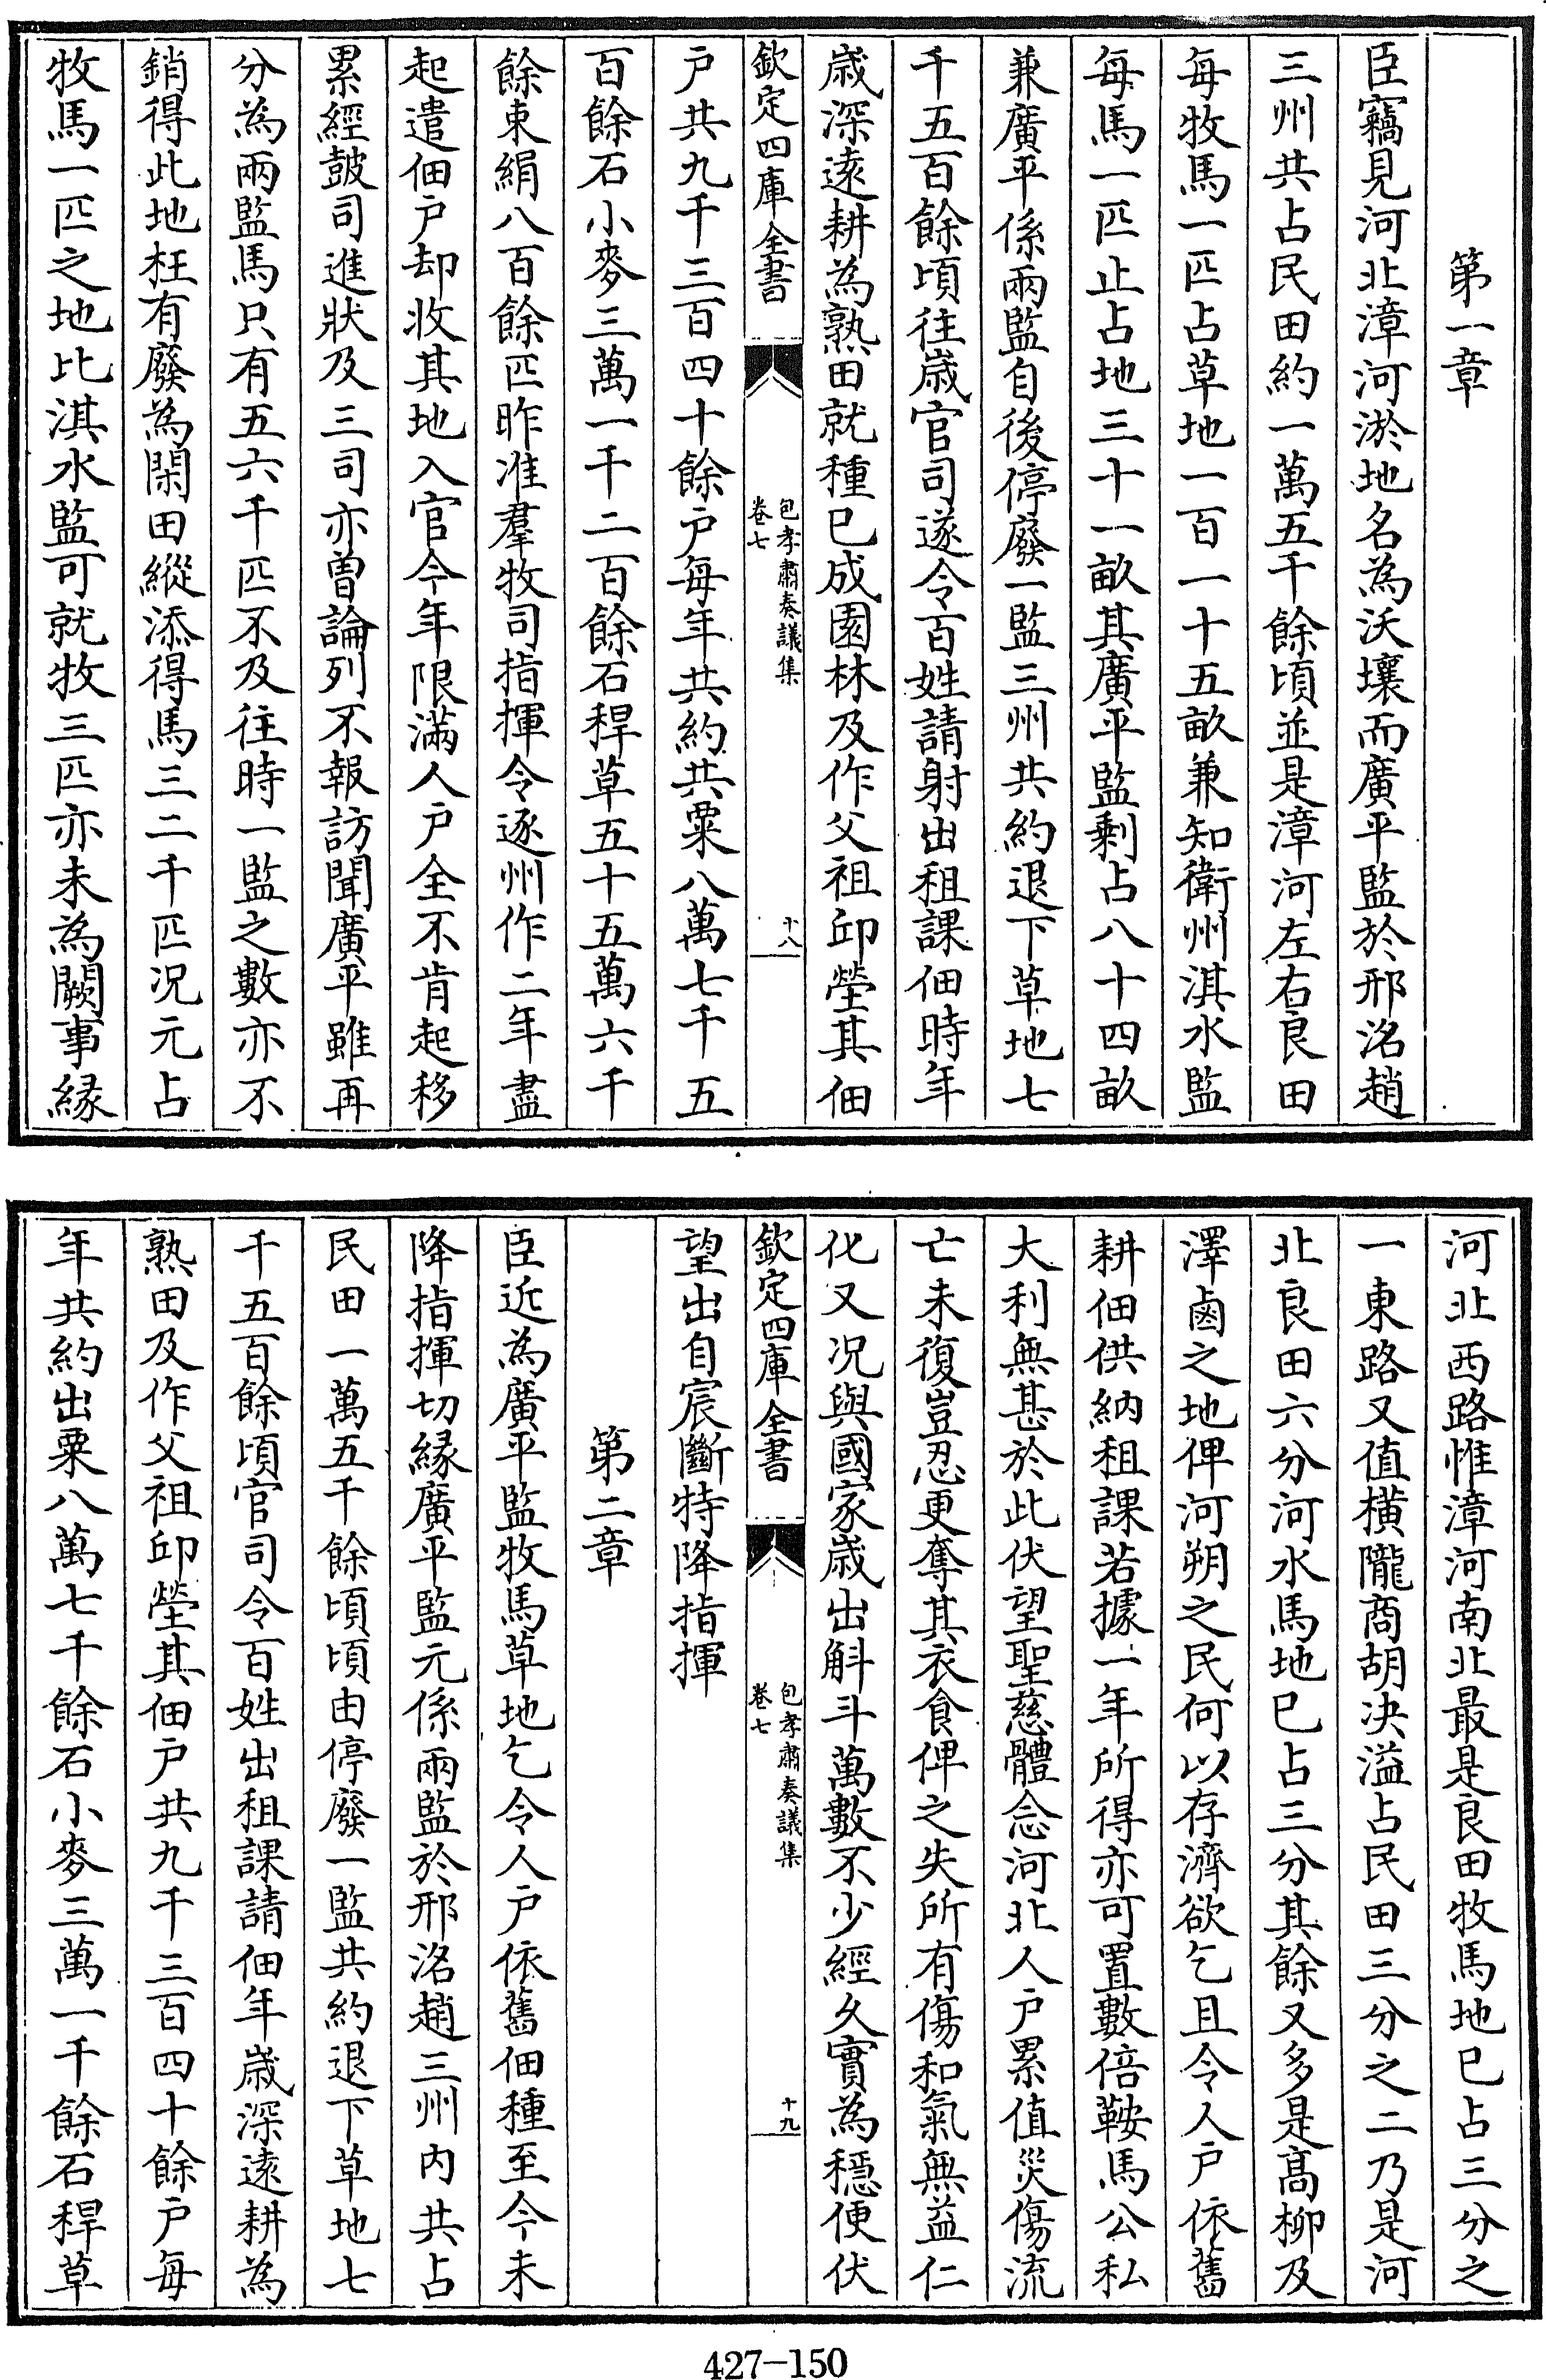 第一章
臣竊見河北漳河淤地名為沃壤而廣平監於邢洺趙
三州共占民田約一萬五千餘頃並是漳河左右良田
每牧馬一匹占草地一百一十五畝兼知衛州淇水監
每馬一匹止占地三十一畝其廣平監剩占八十四畝
兼廣平係兩監自後停廢一監三州共約退下草地七
千五百餘頃往歳官司遂令百姓請射出租課佃時年
歳深逺耕為熟田就種已成園林及作父祖邱塋其佃
欽定四庫全書
包孝肅奏議集
卷七
十八
户共九千三百四十餘户每年共約共粟八萬七千五
百餘石小麥三萬一千二百餘石稈草五十五萬六千
餘束絹八百餘匹昨准羣牧司指揮令逐州作二年盡
起遣佃户却收其地入官今年限滿人户全不肯起移
累經皷司進狀及三司亦曽論列不報訪聞廣平雖再
分為兩監馬只有五六千匹不及往時一監之數亦不
銷得此地枉有廢為閑田縱添得馬三二千匹况元占
牧馬一匹之地比淇水監可就牧三匹亦未為闕事縁
河北西路惟漳河南北最是良田牧馬地已占三分之
一東路又值横隴商胡决溢占民田三分之二乃是河
北良田六分河水馬地已占三分其餘又多是髙柳及
澤鹵之地俾河朔之民何以存濟欲乞且令人户依舊
耕佃供納租課若據一年所得亦可置數倍鞍馬公私
大利無甚於此伏望聖慈體念河北人户累值災傷流
亡未復豈忍更奪其衣食俾之失所有傷和氣無益仁
化又况與國家歳出斛斗萬數不少經久實為穏便伏
欽定四庫全書
包孝肅奏議集
卷七
十九
望出自宸斷特降指揮
第二章
臣近為廣平監牧馬草地乞令人户依舊佃種至今未
降指揮切縁廣平監元係兩監於邢洺趙三州内共占
民田一萬五千餘頃頃由停廢一監共約退下草地七
千五百餘頃官司令百姓出租課請佃年歳深逺耕為
熟田及作父祖邱塋其佃户共九千三百四十餘户每
年共約出粟八萬七千餘石小麥三萬一千餘石稈草
427-150